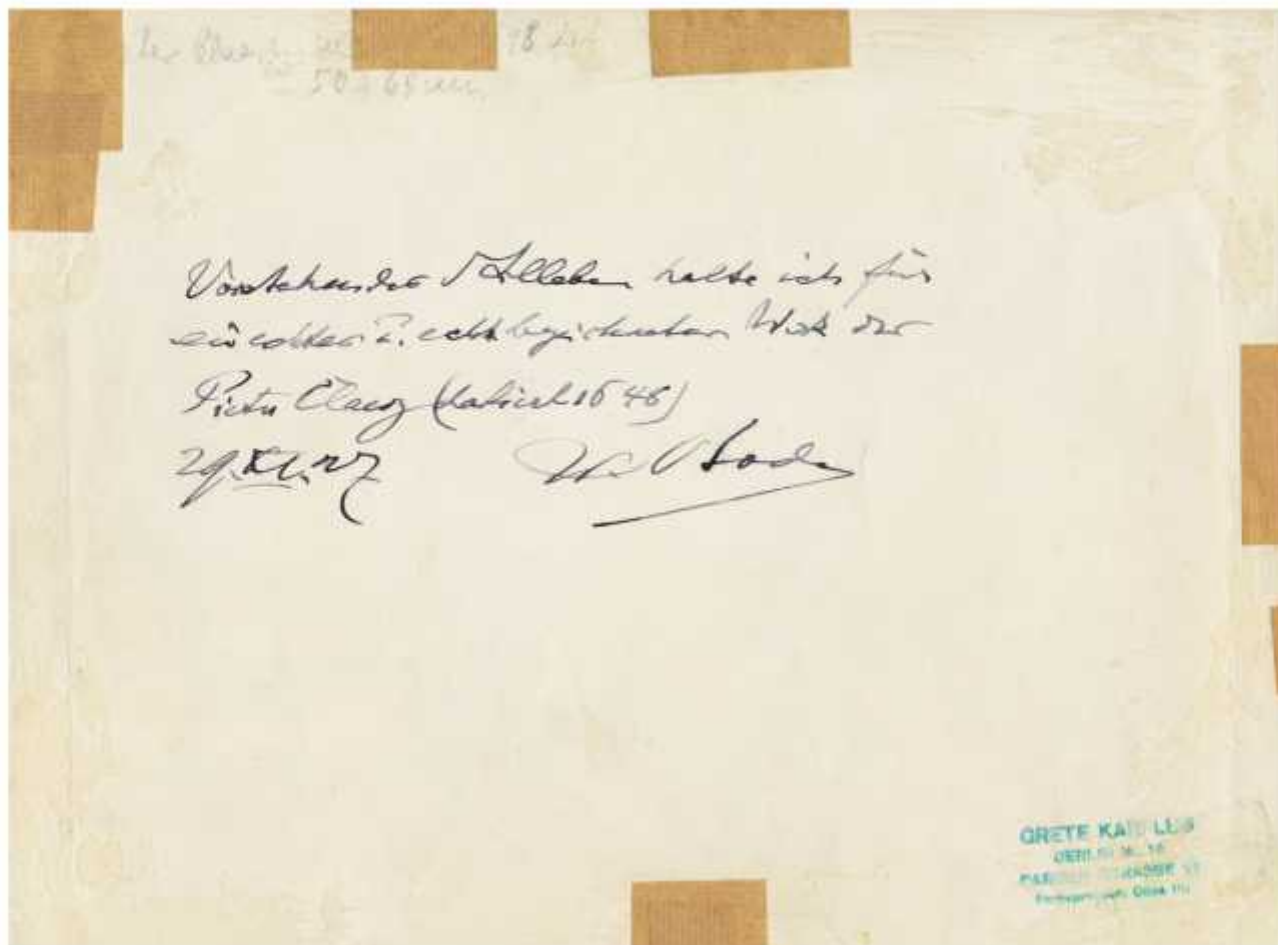 50 x 65 cm
Vorstehendes Stilleben halte ich für
ein echtes u. echt bezeichnetes Werk des
Pieter Claesz (datiert 1648)
29.XI.27 W. Bode
GRETE
BERLIN W.